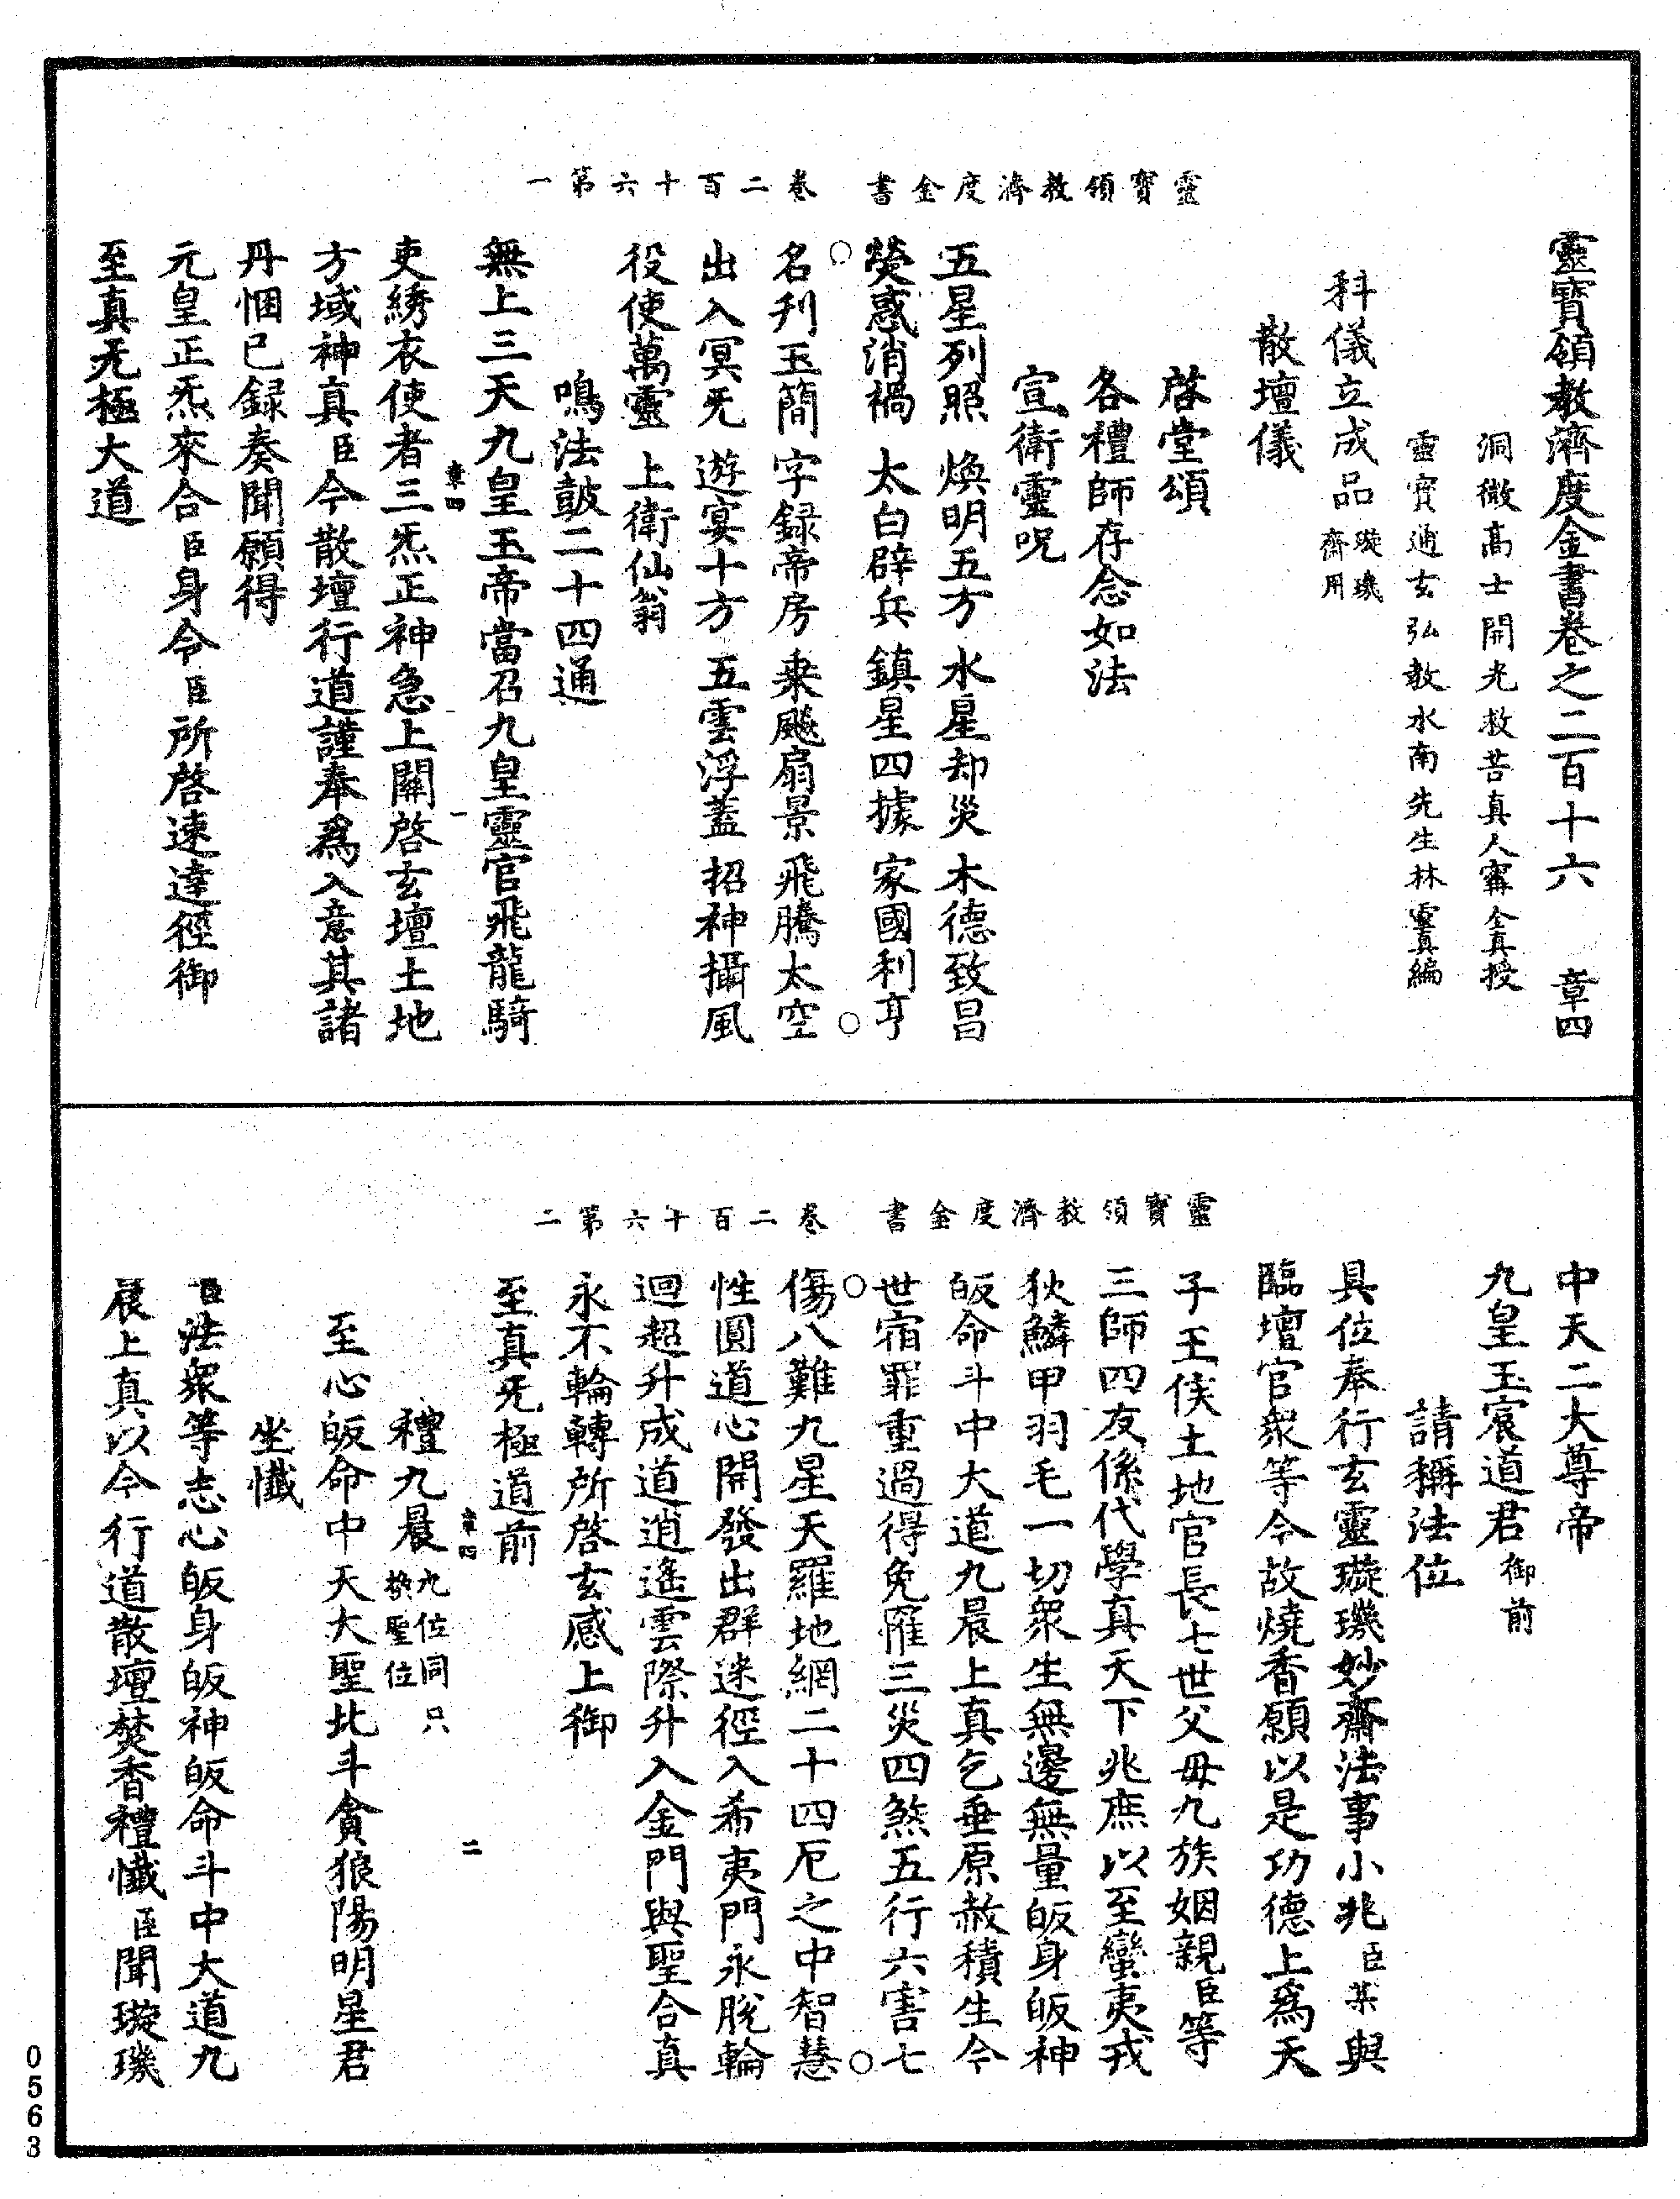 靈寶領教濟度金書卷之二百十六　章四
洞微高士開光救苦真人甯全真授
靈寶通玄弘教水南先生林靈真編
科儀立成品璇璣齋用
散壇儀
啓堂頌
各禮師存念如法
宣衛靈呪
五星列照　煥明五方　水星却災　木德致昌
熒惑消禍　太白辟兵　鎮星四據　家國利亨
名刋玉簡　字録帝房　乗飈扇景　飛騰太空
出入冥无　遊宴十方　五雲浮蓋　招神攝風
役使萬靈　上衛仙翁
鳴法鼓二十四通
無上三天九皇玉帝當召九皇靈官飛龍騎
吏綉衣使者三炁正神急上關啓玄壇土地
方域神真臣今散壇行道謹奉爲入意其諸
丹悃已録奏聞願得
元皇正炁來合臣身令臣所啓速達徑御
至真无極大道
靈寶領教濟度金書　卷二百十六第一
章四　一
中天二大尊帝
九皇玉宸道君御前
請稱法位
具位奉行玄靈璇璣妙齋法事小兆臣某與
臨壇官衆等今故燒香願以是功德上爲天
子王侯土地官長七世父毋九族姻親臣等
三師四友係代學真天下兆庶以至蠻夷戎
狄鱗甲羽毛一切衆生無邊無量皈身皈神
皈命斗中大道九晨上真乞垂原赦積生今
世宿罪重過得免罹三災四煞五行六害七
傷八難九星天羅地網二十四厄之中智慧
性圓道心開發出群迷徑入希夷門永脫輪
迴超升成道逍遙雲際升入金門與聖合真
永不輪轉所啓玄感上御
至真无極道前
禮九晨九位同只換聖位
至心皈命中天大聖北斗貪狼陽明星君
坐懺
臣法衆等志心皈身皈神皈命斗中大道九
晨上真以今行道散壇焚香禮懺臣聞璇璣
靈寶領教濟度金書　卷二百十六第二
章四　二
0563